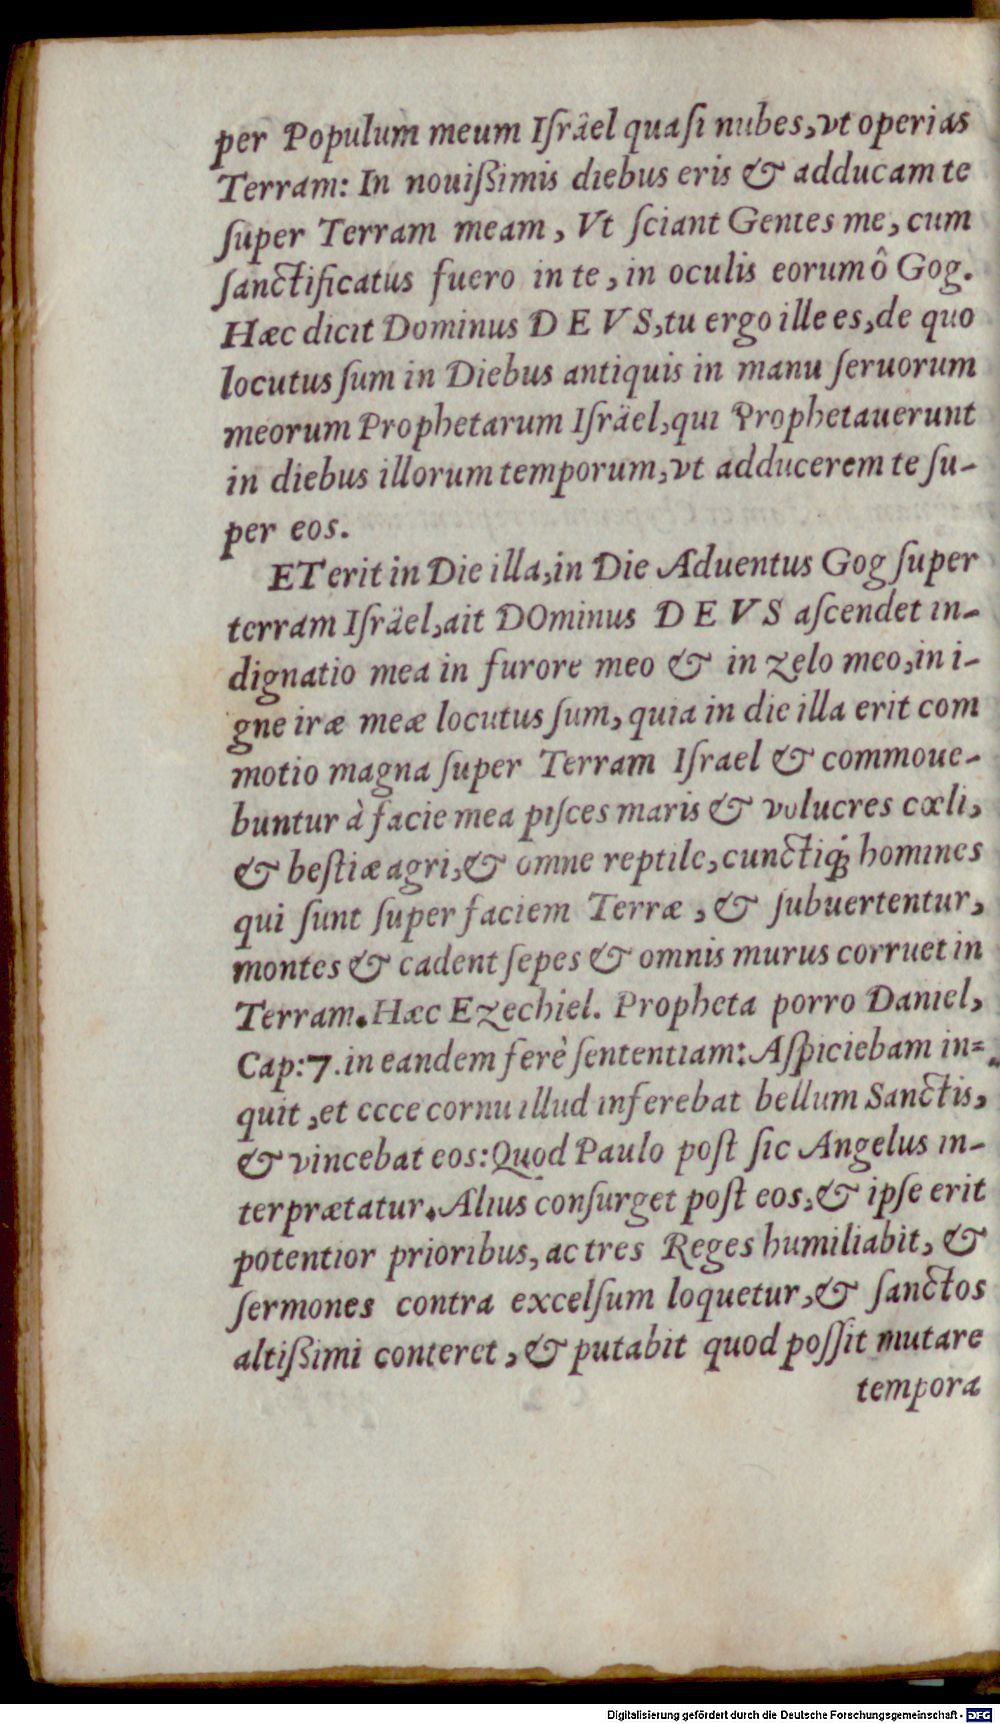 per Populum meum Iſrâel quaſi nubes, vt operias
Terram: In nouiſſimis diebus eris & adducam te
ſuper Terram meam, Vt ſciant Gentes me, cum
ſanctificatus fuero in te, in oculis eorum ô Gog.
Hæc dicit Dominus DEVS, tu ergo ille es, de quo
locutus ſum in Diebus antiquis in manu ſeruorum
meorum Prophetarum Iſräel, qui Prophetauerunt
in diebus illorum temporum, vt adducerem te ſu-
per eos.
ET erit in Die illa, in Die Aduentus Gog ſuper
terram Iſräel, ait DOminus DEVS aſcendet in-
dignatio mea in furore meo & in zelo meo, in i-
gne iræ meæ locutus ſum, quia in die illa erit com
motio magna ſuper Terram Iſrael & commoue-
buntur à facie mea piſces maris & volucres cœli,
& beſtiæ agri, & omne reptile, cunctiq́; homines
qui ſunt ſuper faciem Terræ, & ſubuertentur,
montes & cadent ſepes & omnis murus corruet in
Terram. Hæc Ezechiel. Propheta porro Daniel,
Cap: 7. in eandem ferè ſententiam: Aſpiciebam in=
quit, et ecce cornu illud inferebat bellum Sanctis,
& vincebat eos: Quod Paulo poſt ſic Angelus in-
terprætatur. Alius conſurget poſt eos, & ipſe erit
potentior prioribus, ac tres Reges humiliabit, &
ſermones contra excelſum loquetur, & ſanctos
altiſſimi conteret, & putabit quod poſſit mutare
tempora
Digitalisierung gefördert durch die Deutsche Forschungsgemeinschaft - DFG